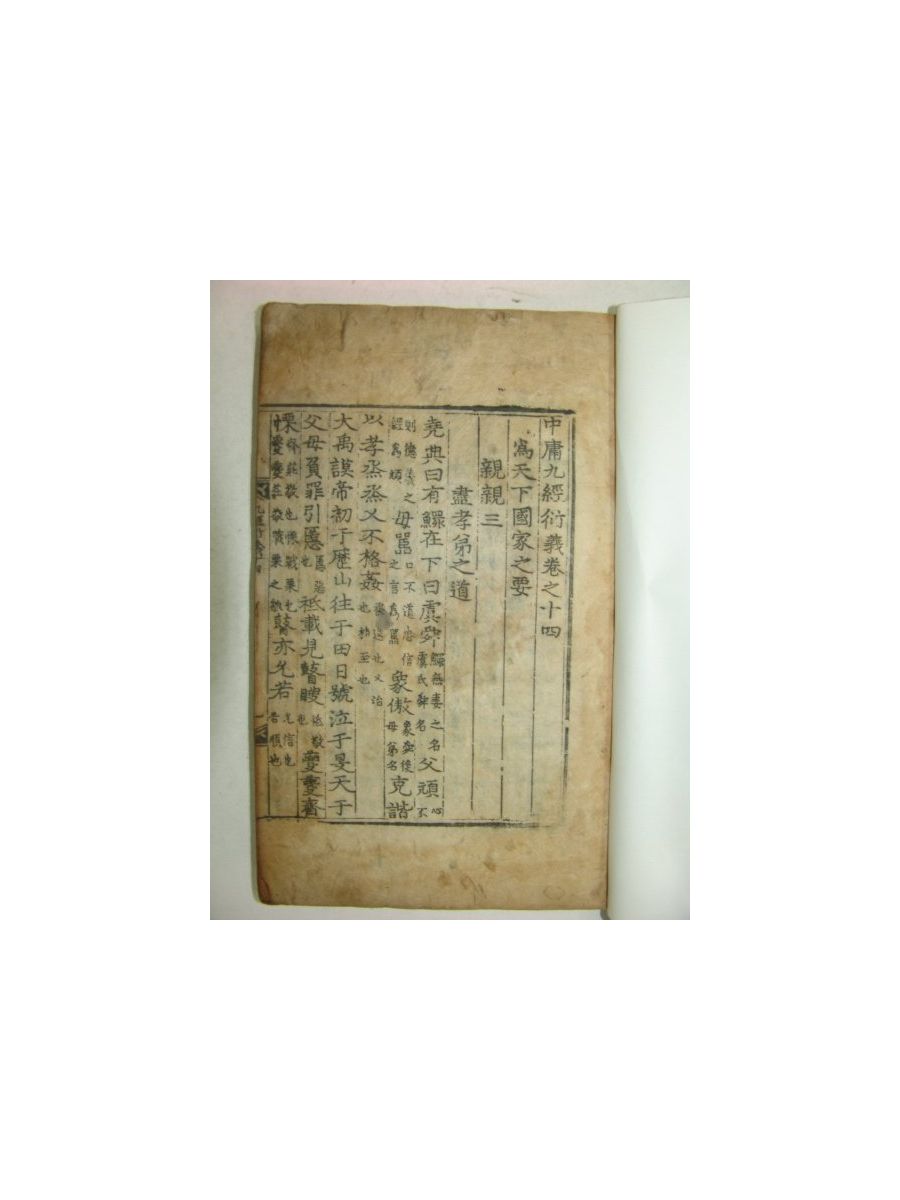 中庸九經衍義卷之十四
爲天下國家之要
親親三
盡孝弟之道
堯典曰有鰥在下曰虞舜鰥無妻之名虞氏舜名父頑心不
則德義之經爲頑母嚚口不道忠信之言爲嚚象傲象舜後母弟名克諧
以孝烝烝乂不格姦烝進也乂治也格至也
大禹謨帝初于歷山往于田日號泣于旻天于
父母負罪引慝慝惡也祗載見瞽瞍祗敬也夔夔齊
慄齊莊敬也慄戰栗也夔夔莊敬戰栗之皃瞽亦允若允信也若順也